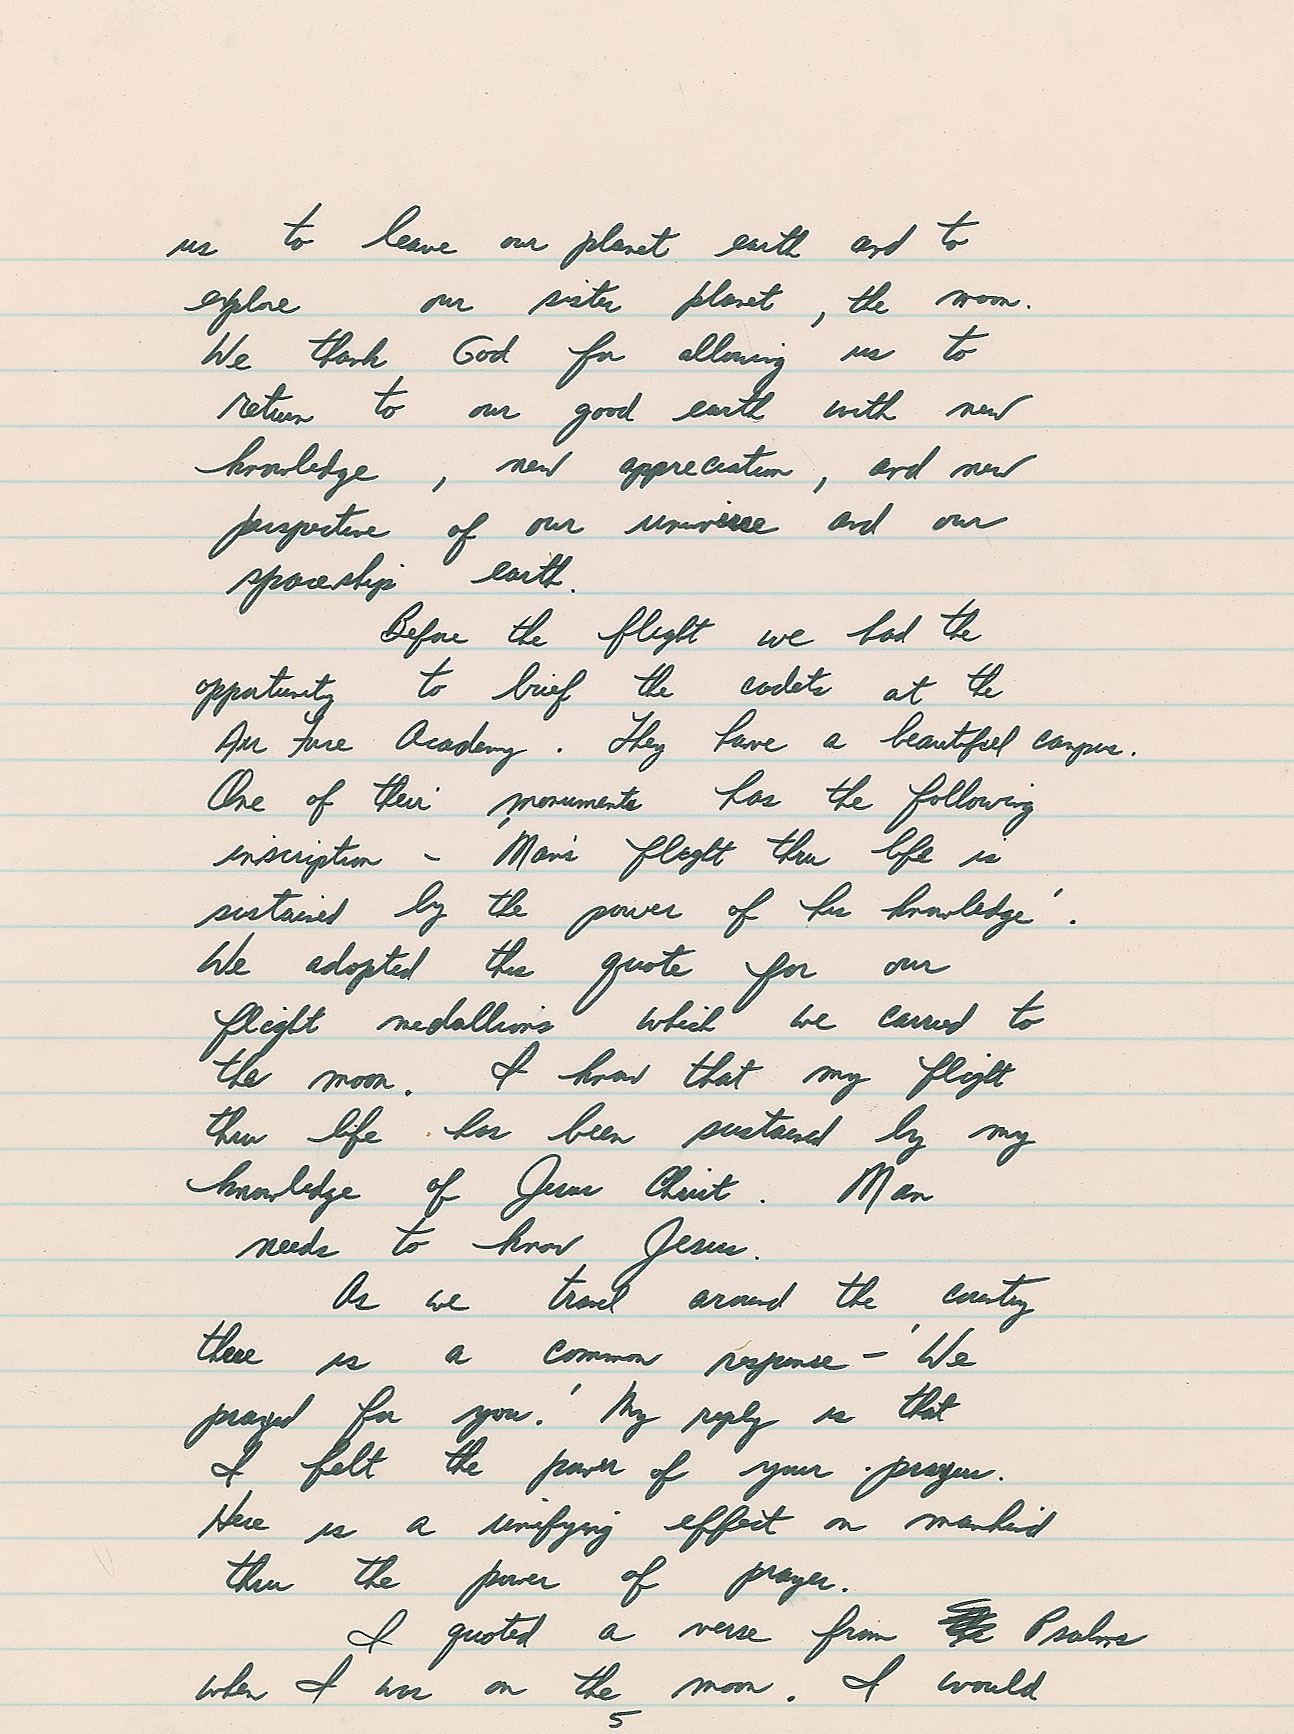 us to leave our planet earth and to
explore our sister planet, the moon.
We thank God for allowing us to
return to our good earth with new
knowledge, new appreciation, and new
perspective of our universe and our
spaceship earth.
Before the flight we had the
opportunity to brief the cadets at the
Air Force Academy. They have a beautiful campus.
One of their monuments has the following
inscription - 'Man's flight thru life is
sustained by the power of his knowledge'.
We adopted this quote for our
flight medallions which we carried to
the moon. I know that my flight
thru life has been sustained by my
knowledge of Jesus Christ. Man
needs to know Jesus.
As we travel around the country
there is a common response - 'We
prayed for you.' My reply is that
I felt the power of your prayers.
Here is a unifying effect on mankind
thru the power of prayer.
I quoted a verse from Psalms
when I was on the moon. I would
5